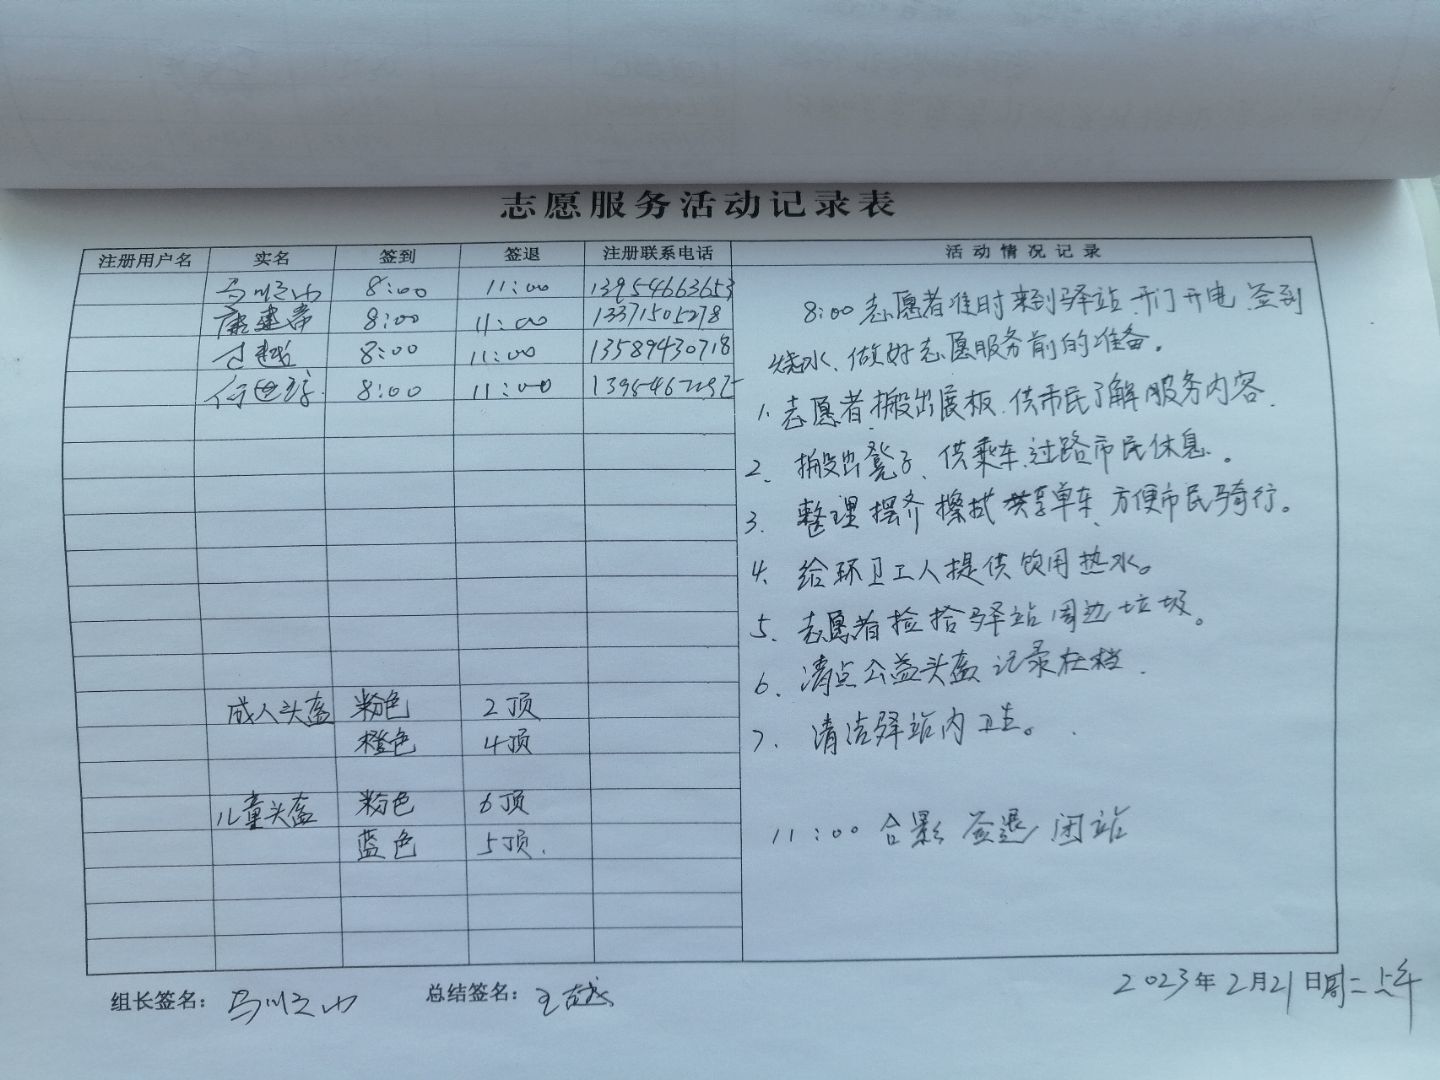 志愿服务活动记录表
注册用户名 实名 签到 签退 注册联系电话 活动情况记录
8:00 11:00 13954663653
康建 8:00 11:00 13371505278
越 8:00 11:00 13589430718
8:00 11:00
成人头盔 粉色 2顶
橙色 4顶
儿童头盔 粉色 6顶
蓝色 5顶.
8:00 志愿者准时来到驿站、开门开电、签到
烧水、做好志愿服务前的准备。
1. 志愿者搬出展板、供市民了解服务内容.
2. 搬出凳子、供乘车、过路市民休息。
3. 整理摆齐擦拭共享单车、方便市民骑行。
4、给环卫工人提供饮用热水。
5、志愿者捡拾驿站周边垃圾。
6、清点公益头盔记录在档.
7、清洁驿站内卫生。
11:00 合影 签退 闭站
组长签名: 总结签名: 王越 2023年2月21日周二上午